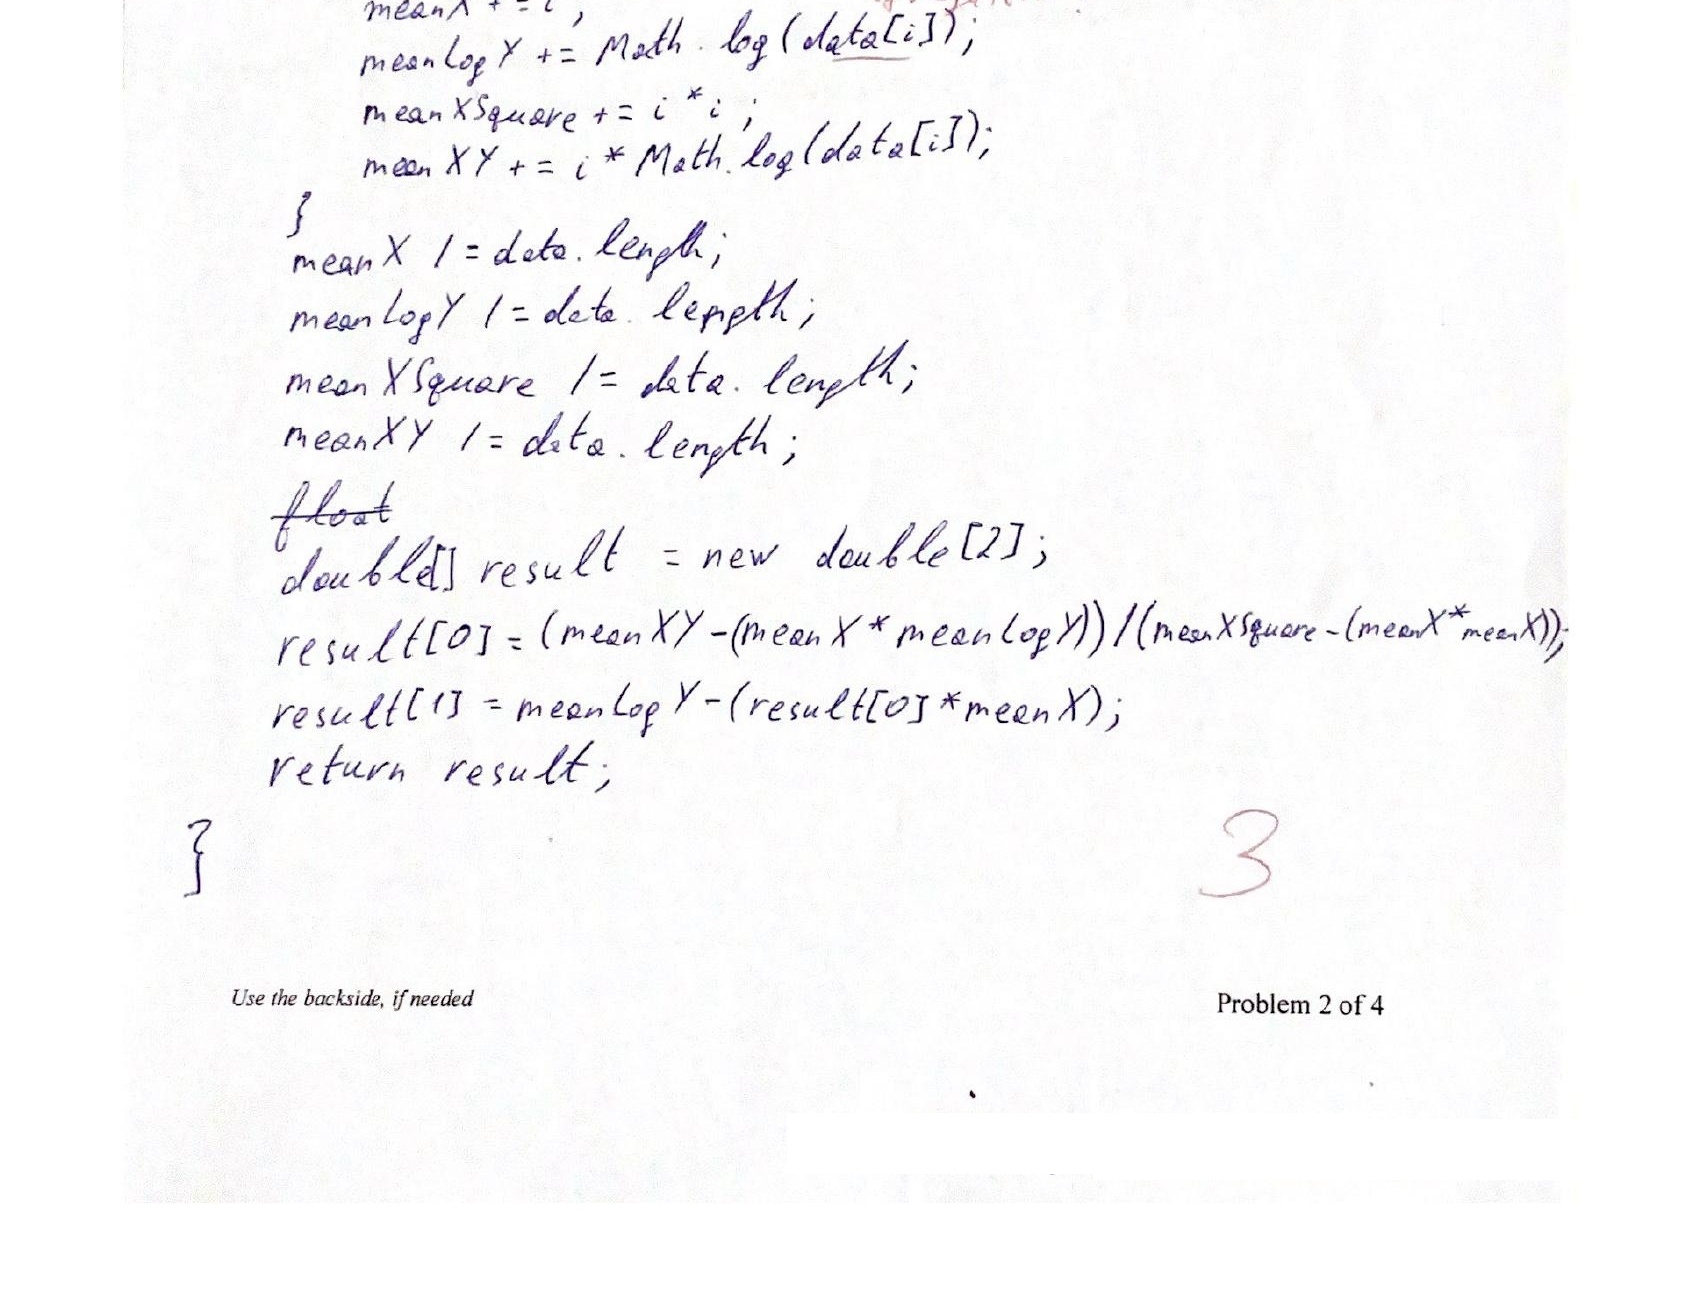 meanX += i;
meanLogY += Math.log(data[i]);
meanXSquare += i*i;
meanXY += i * Math.log(data[i]);
}
meanX /= data.length;
meanLogY /= data.length;
meanXSquare /= data.length;
meanXY /= data.length;
float
double[] result = new double[2];
result[0] = (meanXY-(meanX*meanLogY))/(meanXSquare-(meanX*meanX));
result[1] = meanLogY-(result[0]*meanX);
return result;
}
3
Use the backside, if needed
Problem 2 of 4